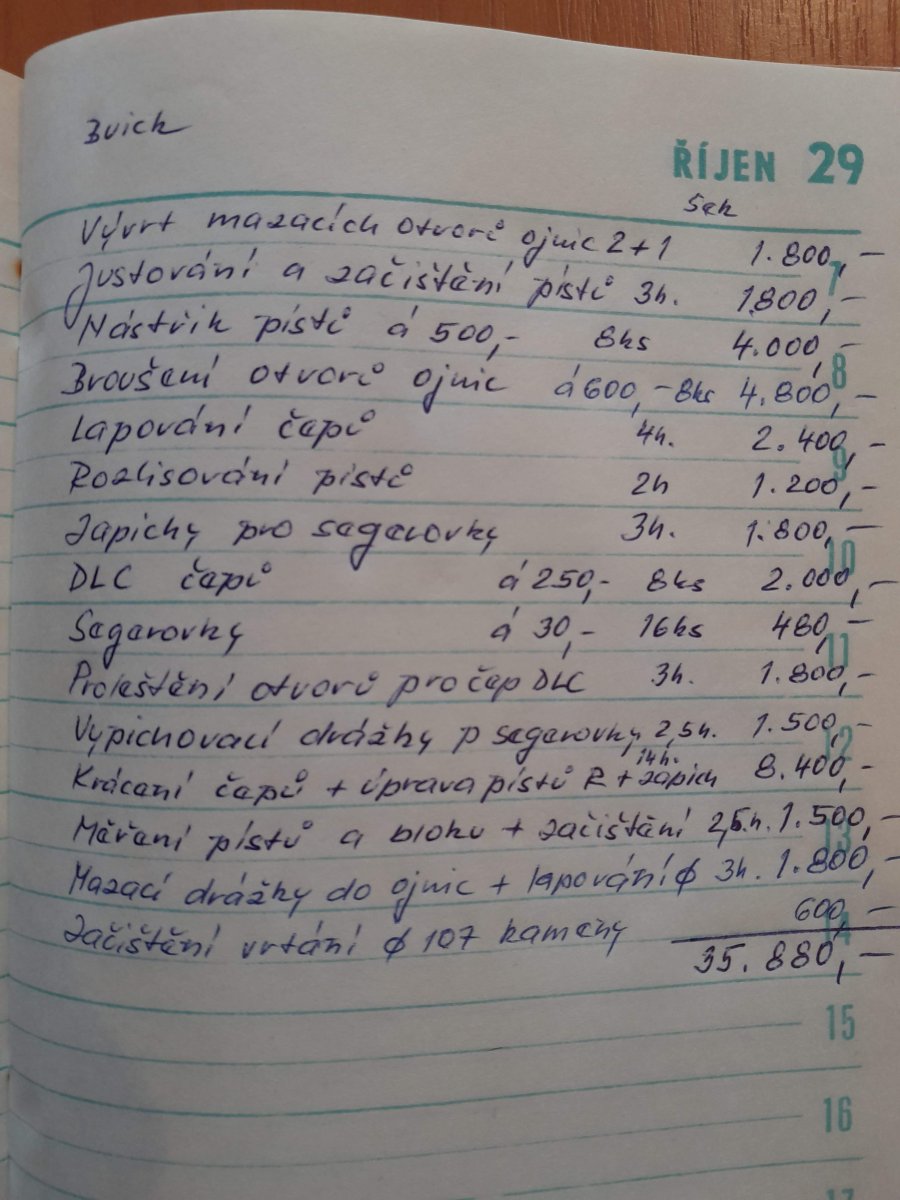 Buick
ŘÍJEN 29
Vývrt mazacích otvorů ojnic 2+1 1.800,-
7
Justování a začištění pístů 3h. 1.800,-
Nástřik pístů á 500,- 8ks 4.000,-
8
Broušení otvorů ojnic á 600,- 8ks 4.800,-
Lapování čapů 4h. 2.400,-
9
Rozlisování pístů 2h 1.200,-
Zápichy pro segerovky 3h. 1.800,-
10
DLC čapů á 250,- 8ks 2.000,-
Segerovky á 30,- 16ks 480,-
11
Proleštění otvorů pro čap DLC 3h. 1.800,-
Vypichovací drážky p segerovky 2,5h. 1.500,-
12
Krácení čapů + úprava pístů R + zápich 14h. 8.400,-
Měření pístů a bloku + začištění 2,5.h. 1.500,-
13
Mazací drážky do ojnic + lapování ϕ 3h. 1.800,-
Začištění vrtání ϕ 107 kameny 600,-
14
35.880,-
15
16